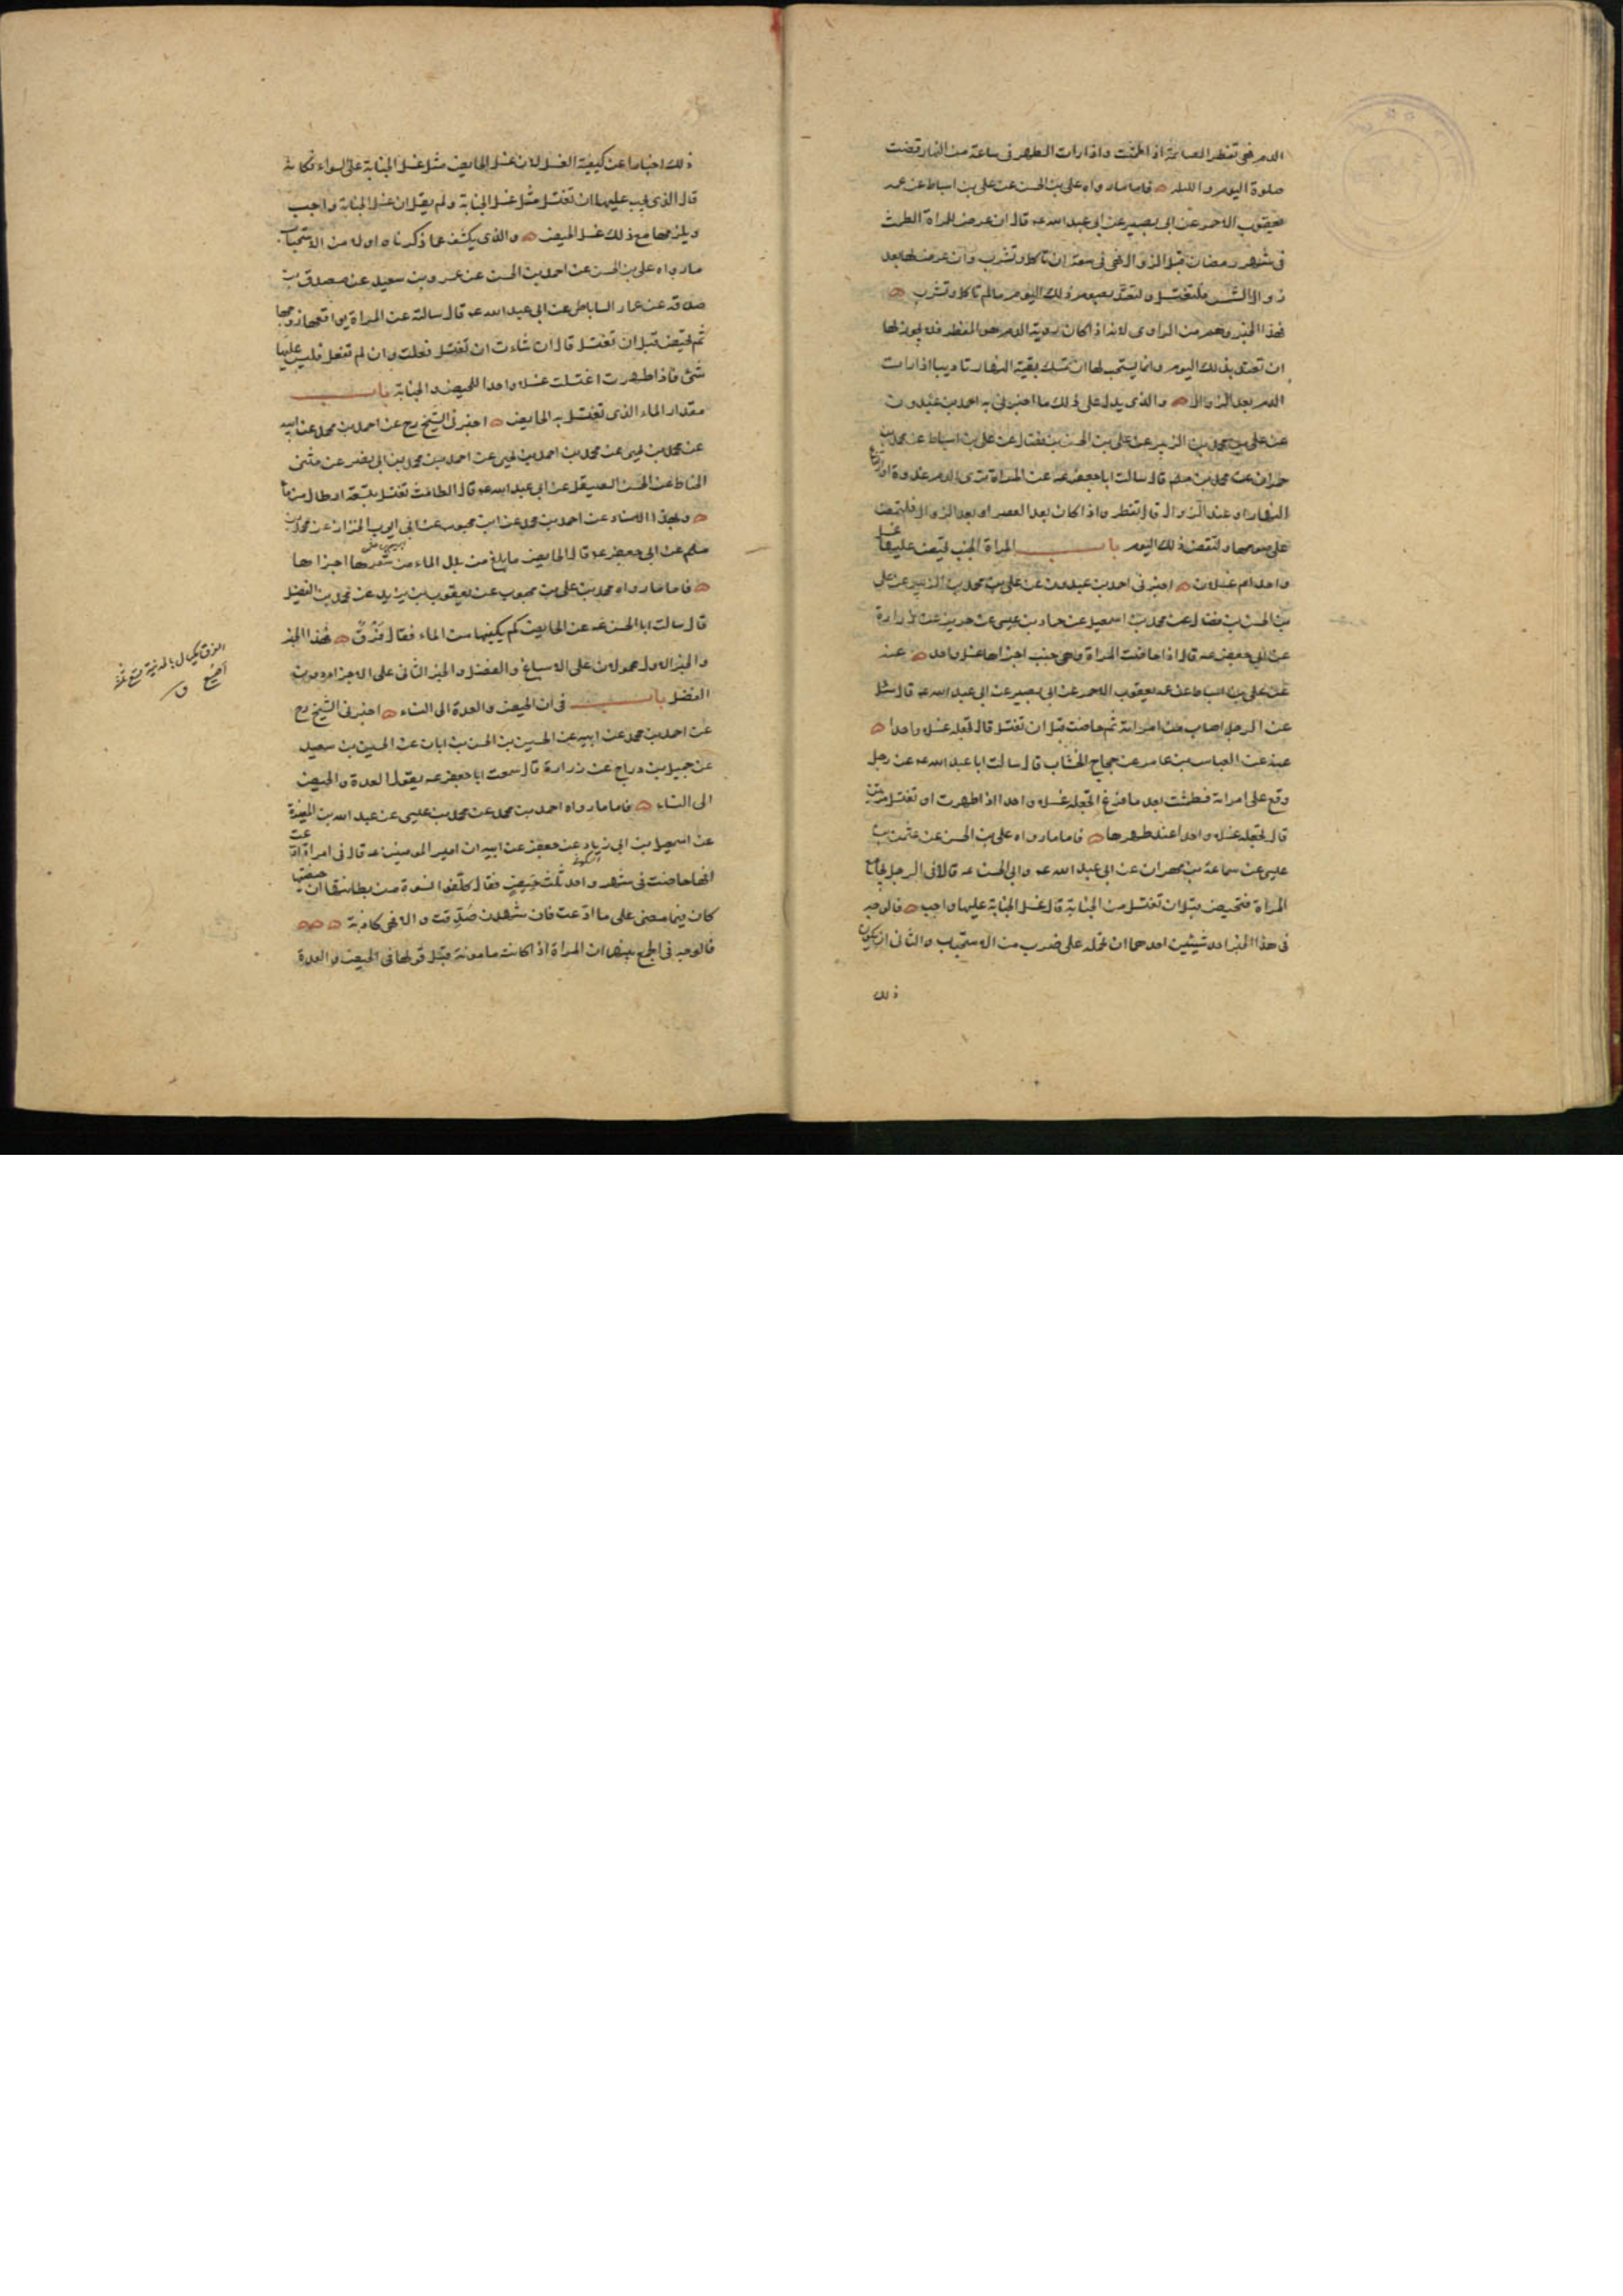 الدم فهي تفطر الصائمة اذا طمثت واذا رات الطهر فى ساعة من النهار قضت
صلوة اليوم والليل فاما ما رواه على بن الحسن عن على بن اسباط عن عمه
يعقوب الاحمر عن ابى بصير عن ابى عبد الله عه قال ان عرض للمراة الطمث
فى شهر رمضان قبل الزوال فهى فى سعة ان تاكل وتشرب وان عرض لها بعد
زوال الشمس فلتغتسل ولتعتد بصوم ذلك اليوم ما لم تاكل وتشرب
فهذا الخبر وهم من الراوى لانه اذا كان روية الدم هو المفطر فلا يجوز لها
ان تعتد بذلك اليوم وانما يستحب لها ان تمسك بقية النهار تاديبا اذا رات
الدم بعد الزوال والذى يدل على ذلك ما اخبرنى به احمد بن عبدون
عن على بن محمد بن الزبير عن على بن الحسن بن فضال عن على بن اسباط عن محمد بن
حمران عن محمد بن مسلم قال سالت ابا جعفر عه عن المراة ترى الدم غدوة او ارتفاع
النهار او عند الزوال قال تفطر واذا كان بعد العصر او بعد الزوال فلتمض
على صومها ولتقض ذلك اليوم باب المراة الجنب تحيض عليها غسل
واحد ام غسلان اخبرنى احمد بن عبدون عن على بن محمد بن الزبير عن على
بن الحسن بن فضال عن محمد بن اسمعيل عن حماد بن عيسى عن حريز عن زرارة
عن ابى جعفر عه قال اذا حاضت المراة وهى جنب اجزاها غسل واحد عنه
عن على بن اسباط عن عمه يعقوب الاحمر عن ابى بصير عن ابى عبد الله عه قال سئل
عن الرجل اصاب من امراته ثم حاضت قبل ان تغتسل قال تجعله غسلا واحدا
عنه عن العباس بن عامر عن حجاج الخشاب قال سالت ابا عبد الله عه عن رجل
وقع على امراته فطمثت بعد ما فرغ اتجعله غسلا واحدا اذا طهرت او تغتسل مرتين
قال تجعله غسلا واحدا عند طهرها فاما ما رواه على بن الحسن عن عثمن بن
عيسى عن سماعة بن مهران عن ابى عبد الله عه وابى الحسن عه قالا فى الرجل يجامع
المراة فتحيض قبل ان تغتسل من الجنابة قال غسل الجنابة عليها واجب فالوجه
فى هذا الخبر احد شيئين احدهما ان نحمله على ضرب من الاستحباب والثانى ان يكون
ذلك
ذلك اخبارا عن كيفية الغسل لان غسل الحايض مثل غسل الجنابة على السواء فكانه
قال الذى يجب عليها ان تغتسل مثل غسل الجنابة ولم يقل ان غسل الجنابة واجب
ويلزمها مع ذلك غسل الحيض والذى يكشف عما ذكرناه اولا من الاستحباب
ما رواه على بن الحسن عن احمد بن الحسن عن عمرو بن سعيد عن مصدق بن
صدقة عن عمار الساباطى عن ابى عبد الله عه قال سالته عن المراة يواقعها زوجها
ثم تحيض قبل ان تغتسل قال ان شاءت ان تغتسل فعلت وان لم تفعل فليس عليها
شئ فاذا طهرت اغتسلت غسلا واحدا للحيض والجنابة باب
مقدار الماء الذى تغتسل به الحايض اخبرنى الشيخ رح عن احمد بن محمد عن ابيه
عن محمد بن يحيى عن محمد بن احمد بن يحيى عن احمد بن محمد بن ابى نصر عن مثنى
الحناط عن الحسن الصيقل عن ابى عبد الله عه قال الطامث تغتسل بتسعة ارطال من ماء
وبهذا الاسناد عن احمد بن محمد عن ابن محبوب عن ابى ايوب الخزاز عن محمد بن
مسلم عن ابى جعفر عه قال الحايض ما بلغ من بلل الماء من شعرها اجزاها
فاما ما رواه محمد بن على بن محبوب عن يعقوب بن يزيد عن محمد بن الفضيل
قال سالت ابا الحسن عه عن الحايض كم يكفيها من الماء فقال فَرْقٌ فهذا الخبر
والخبر الاول محمولان على الاسباغ والفضل والخبر الثانى على الاجزاء دون
الفضل باب فى ان الحيض والعدة الى النساء اخبرنى الشيخ رح
عن احمد بن محمد عن ابيه عن الحسين بن الحسن بن ابان عن الحسين بن سعيد
عن جميل بن دراج عن زرارة قال سمعت ابا جعفر عه يقول العدة والحيض
الى النساء فاما ما رواه احمد بن محمد عن محمد بن عيسى عن عبد الله بن المغيرة
عن اسمعيل بن ابى زياد السكونى عن جعفر عن ابيه ان امير المومنين عه قال فى امراة ادعت
انها حاضت فى شهر واحد ثلث حيض فقال كلفوا نسوة من بطانتها ان حيضتها
كان فيما مضى على ما ادعت فان شهدن صُدِّقت والا فهى كاذبة
فالوجه فى الجمع بينهما ان المراة اذا كانت مامونة قبل قولها فى الحيض والعدة
الفرق مكيال بالمدينة يسع ثلثة
اصُع ق